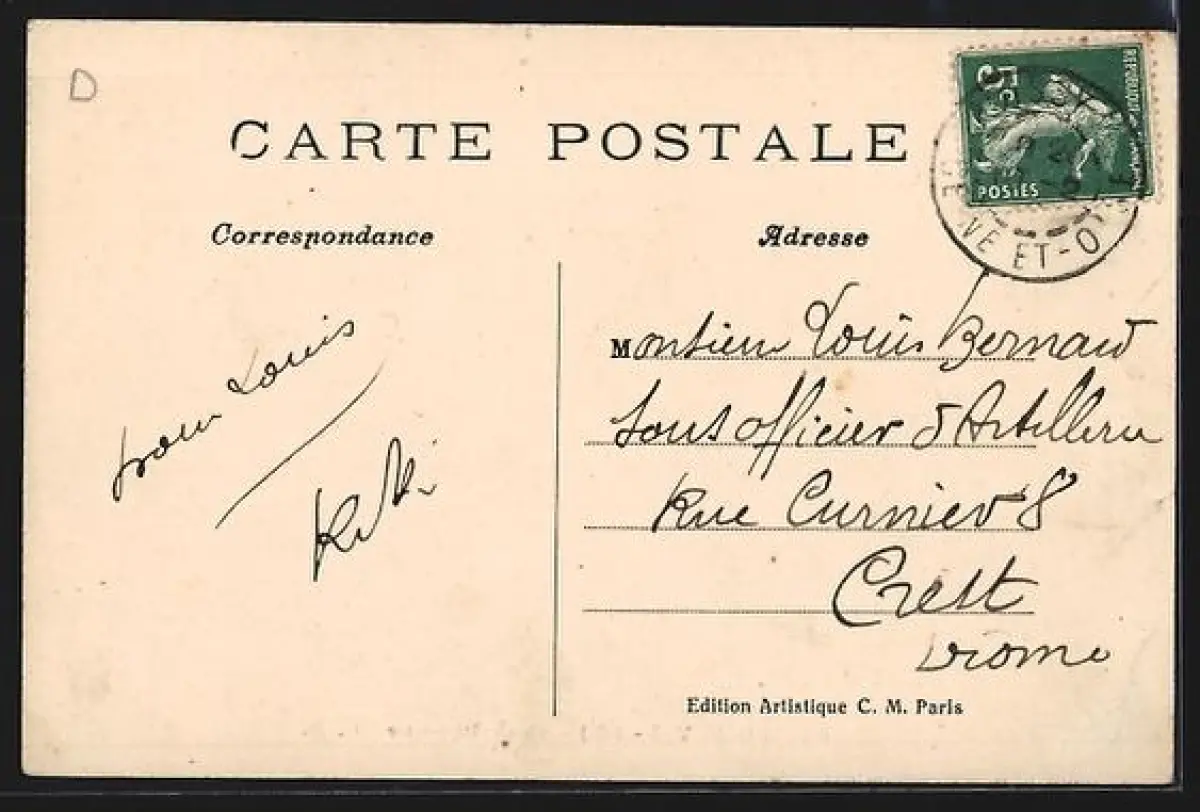 D
CARTE POSTALE
5c
REPUBLIQUE
POSTES
NE ET-O
Correspondance
Adresse
pour Louis
Monsieur Louis Bernard
Sous officier d'Artillerie
Rue Curnier 8
Crest
Drome
Edition Artistique C. M. Paris